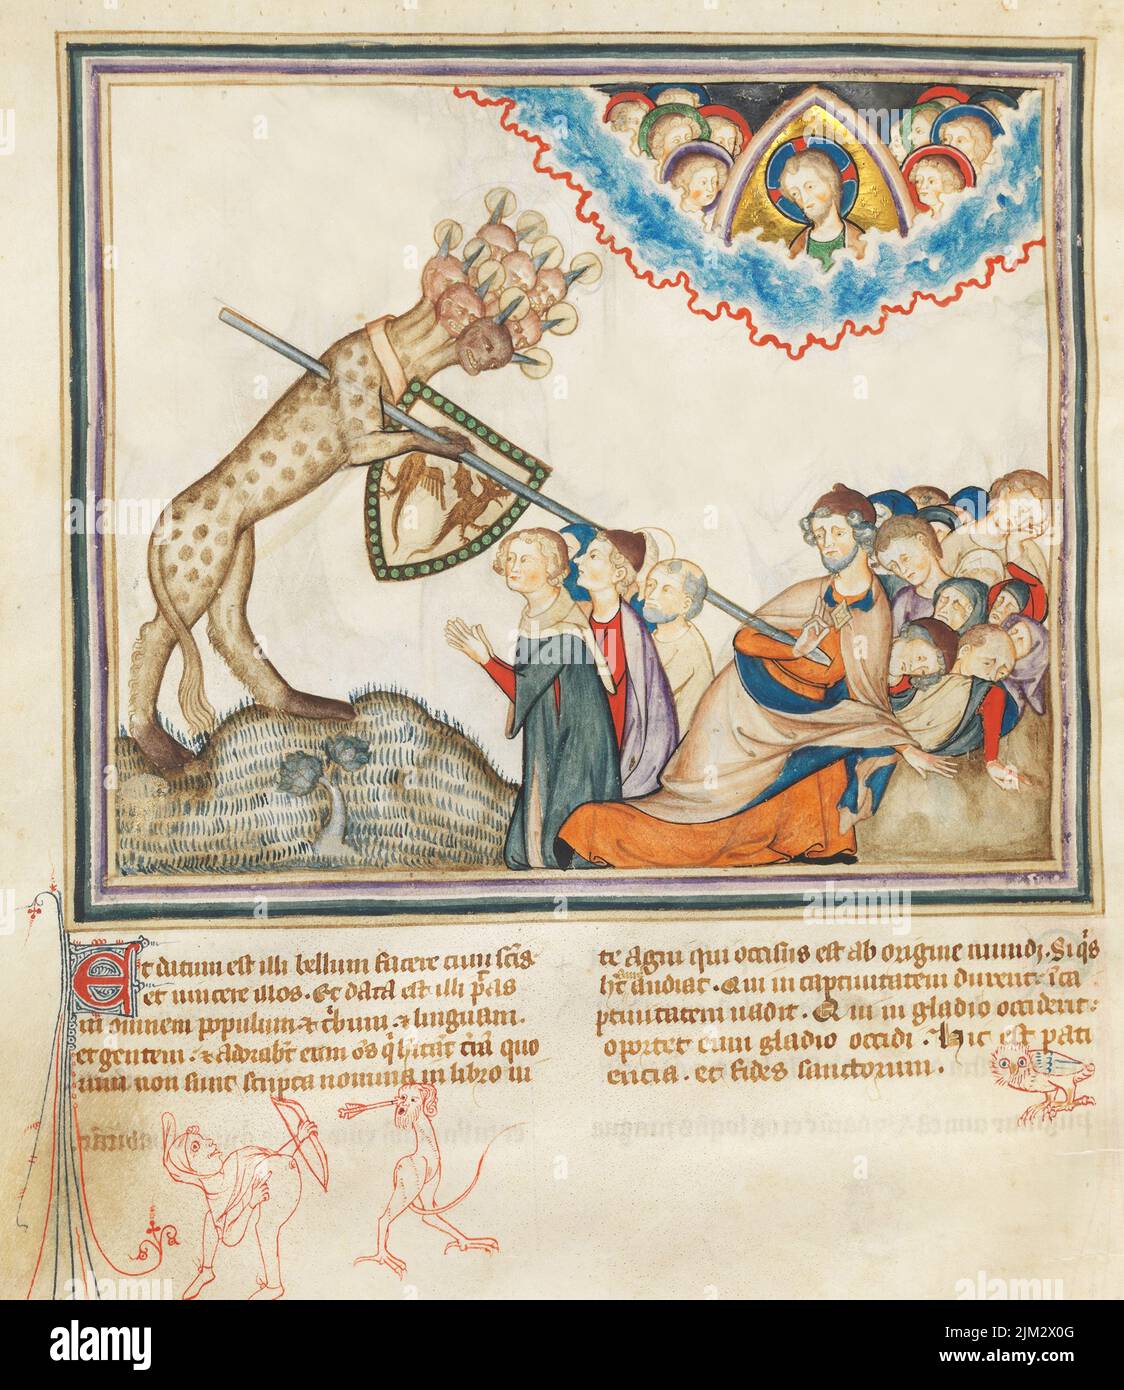 Et datum est illi bellum facere cum scīs
et uincere illos. Et data est illi p̄as
in omnem populum & t'bum & linguam.
et gentem. & adorabt̄ eum ōs q̄ hītant t̄ra quo
rum non sunt scripta nomina in libro ui
te agni qui occisus est ab origine mundi. Si q̄s
ht̄ aurem audiat. Qui in captiuitatem duxerit i ca
ptiuitatem uadit. Qui in gladio occiderit
oportet eum gladio occidi. Hic est pati
encia. et fides sanctorum.
alamy
Image ID: 2JM2X0G
www.alamy.com